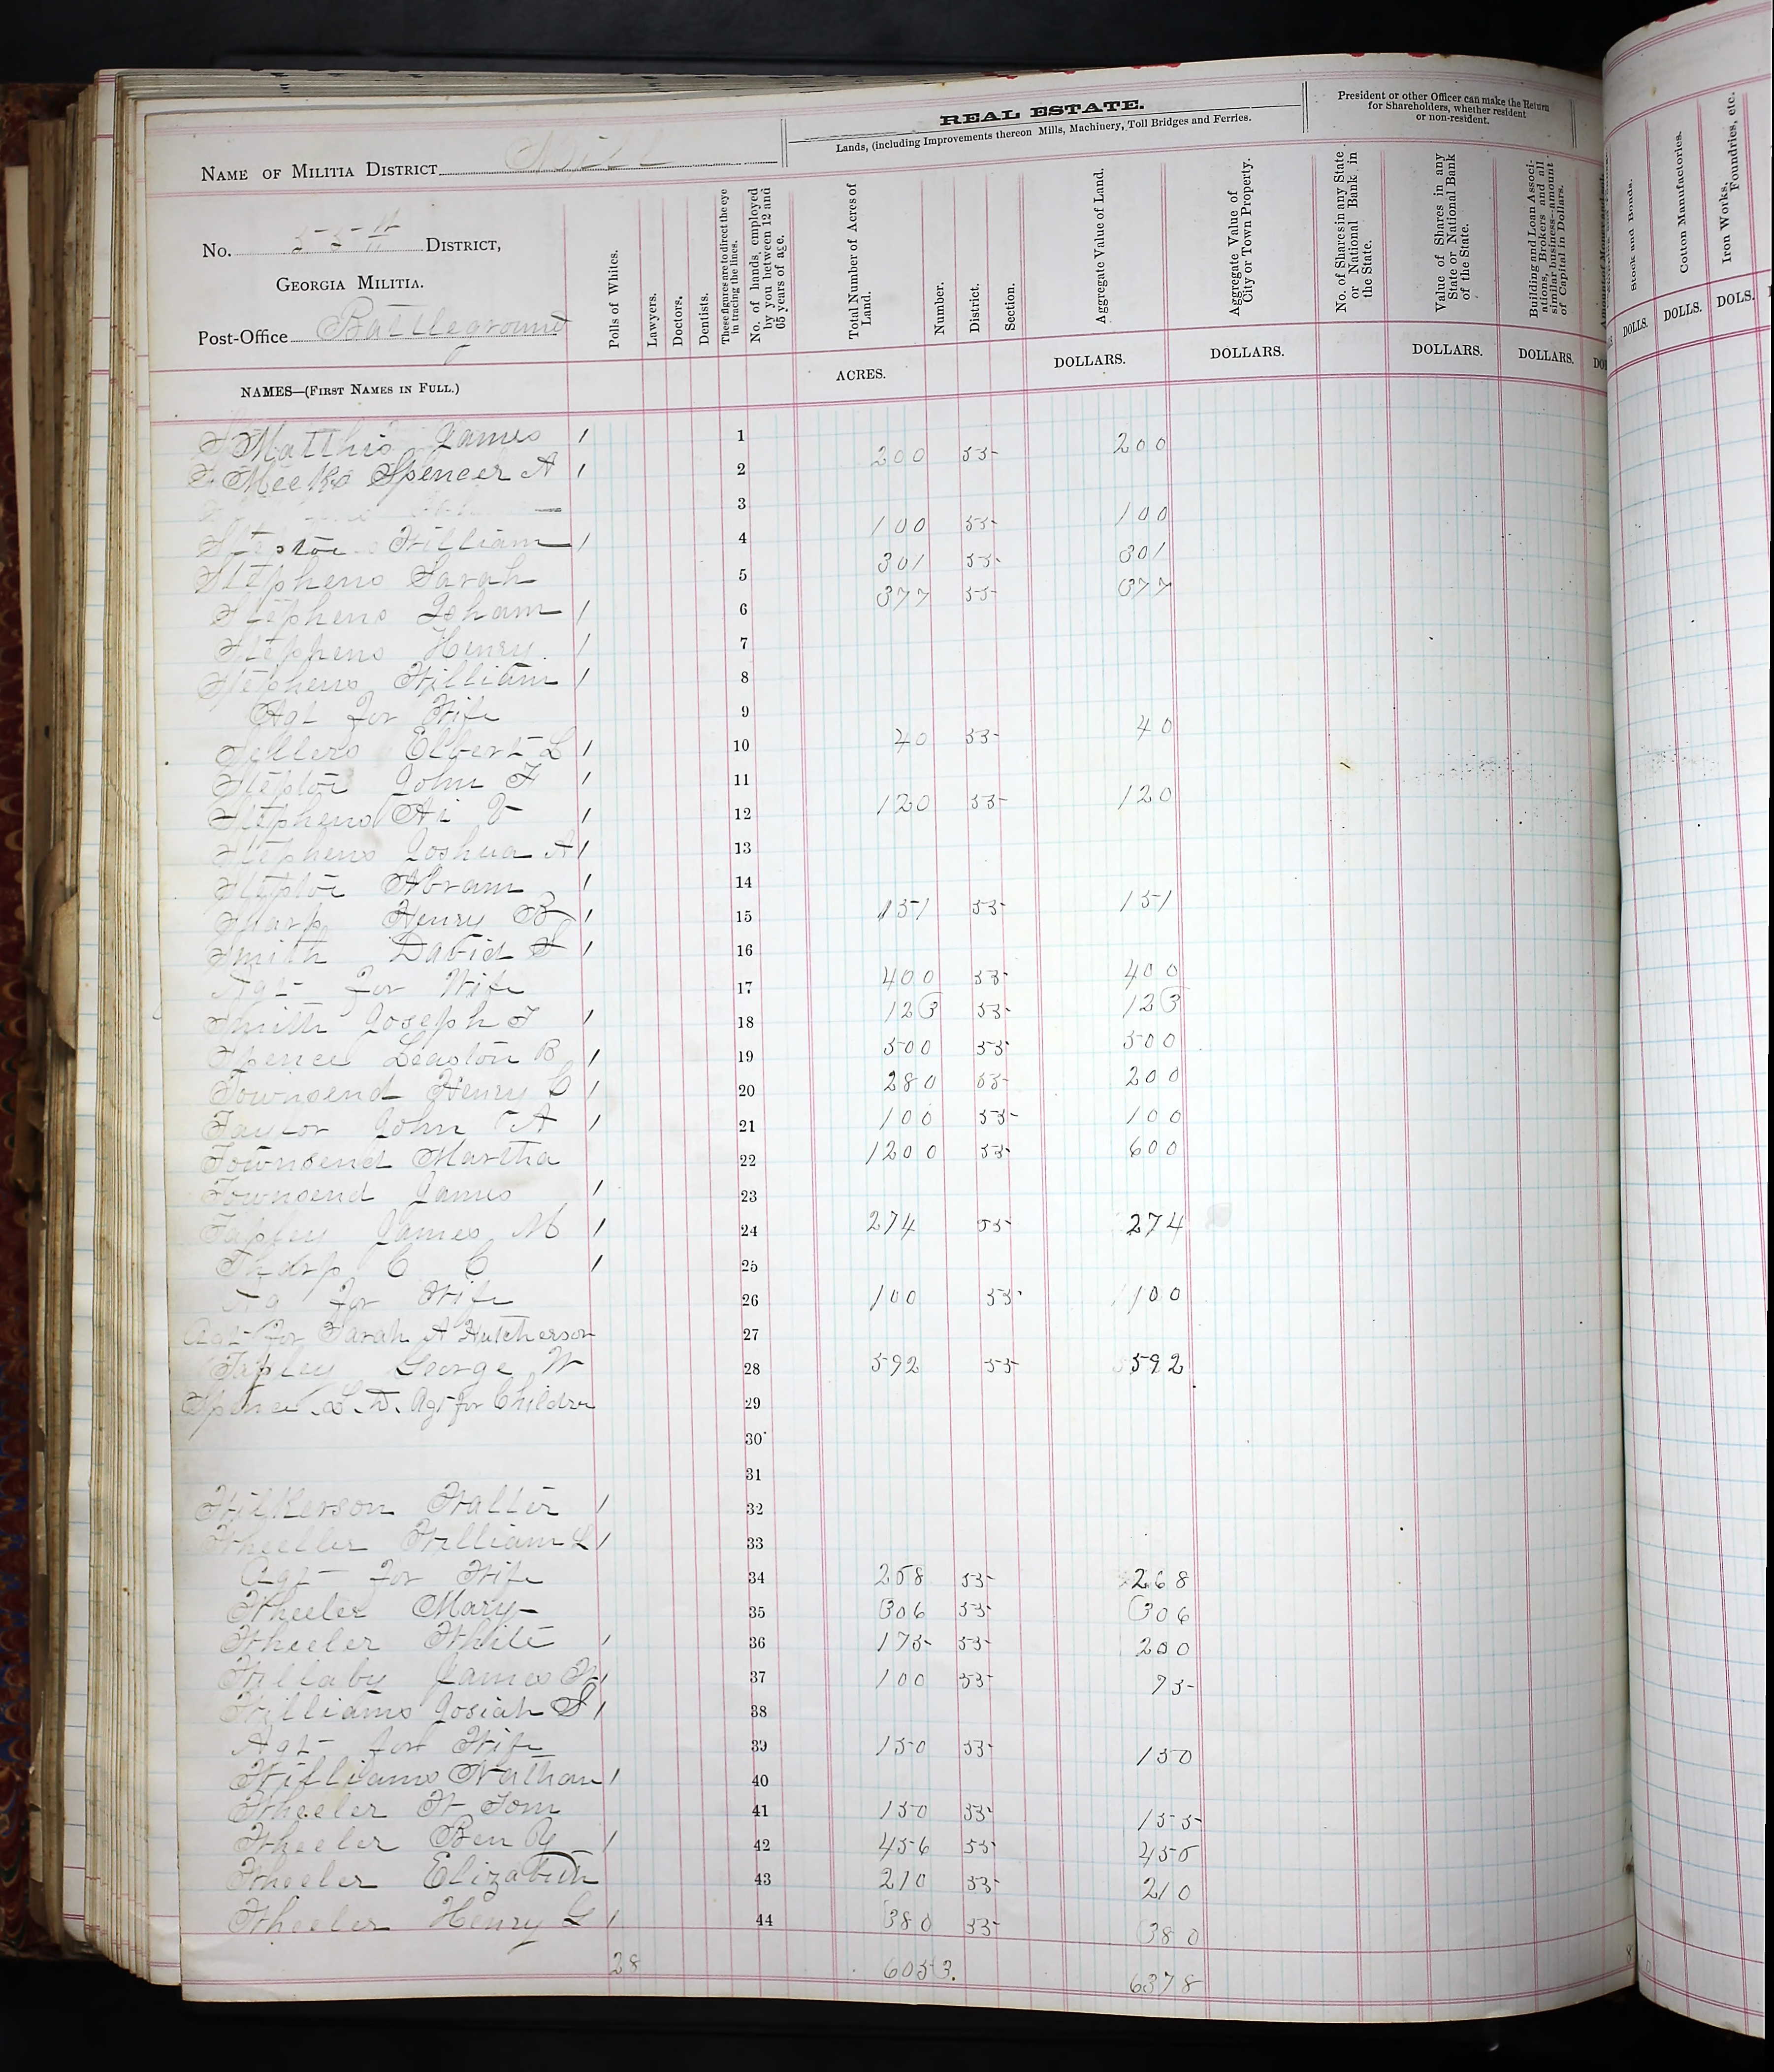 REAL ESTATE.
Lands, (including Improvements thereon Mills, Machinery, Toll Bridges and Ferries.
President or other Officer can make the Return
for Shareholders, whether resident
or non-resident.
NAME OF MILITIA DISTRICT
No. DISTRICT,
GEORGIA MILITIA.
Post-Office Battleground
NAMES—(FIRST NAMES IN FULL.)
Polls of Whites.
Lawyers.
Doctors.
Dentists.
These figures are to direct the eye
in tracing the lines.
No. of hands, employed
by you between 12 and
65 years of age.
Total Number of Acres of
Land.
ACRES.
Number.
District.
Section.
Aggregate Value of Land.
DOLLARS.
Aggregate Value of
City or Town Property.
DOLLARS.
No. of Shares in any State
or National Bank in
the State.
Value of Shares in any
State or National Bank
of the State.
DOLLARS.
Building and Loan Associ-
ations, Brokers and all
similar business—amount
of Capital in Dollars.
DOLLARS.
Stock and Bonds.
DOLLS.
Cotton Manufactories.
DOLLS.
Iron Works,
Foundries, etc.
DOLS.
Matthis James / 1
Meeks Spencer A / 2 200 55 200
3
Steptoe William / 4 100 55 100
Stephens Sarah 5 301 55 301
Stephens Isham / 6 377 55 377
Stephens Henry / 7
Stephens William / 8
Agt for Wife 9
Sellers Elbert L / 10 40 55 40
Steptoe John F / 11
Stephens Ai / 12 120 55 120
Stephens Joshua A / 13
Steptoe Abram / 14
Sharp Henry B / 15 151 55 151
Smith David S / 16
Agt for Wife 17 400 55 400
Smith Joseph T / 18 123 55 123
Spence Leaston B / 19 500 55 500
Townsend Henry C / 20 280 55 200
Taylor John A / 21 100 55 100
Townsend Martha 22 1200 55 600
Townsend James / 23
Tapley James M / 24 274 55 274
Tharp C C / 25
Ag for Wife 26 100 55 100
Agt for Sarah A Hutcherson 27
Tapley George W 28 592 55 592
Spence L. D. Agt for Children 29
30
31
Wilkerson Walter / 32
Wheeler William L / 33
Agt for Wife 34 268 55 268
Wheeler Mary 35 306 55 306
Wheeler White / 36 175 55 200
Willaby James W / 37 100 55 75
Williams Josiah S / 38
Agt for Wife 39 150 55 150
Williams Nathan / 40
Wheeler W Tom 41 150 55 155
Wheeler Ben / 42 456 55 456
Wheeler Elizabeth 43 210 55 210
Wheeler Henry G / 44 380 55 380
28 6053. 6378